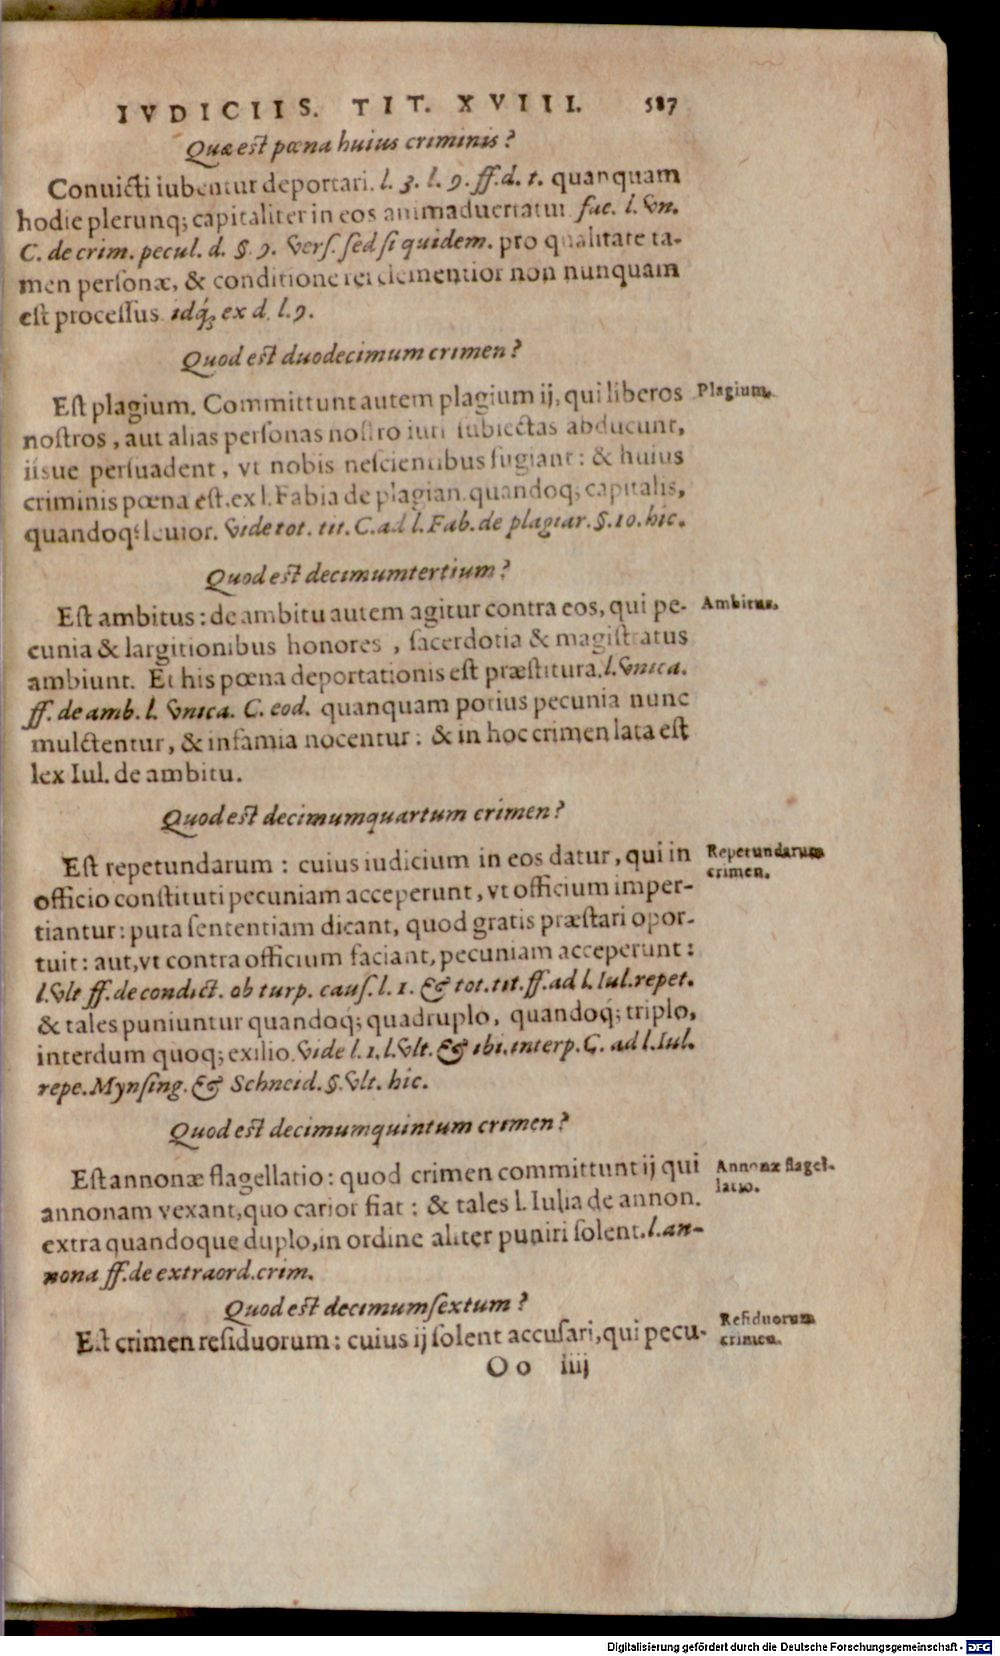 IVDICIIS. TIT. XVIII. 587
Quæ est pœna huius criminis?
Conuicti iubentur deportari. l. 3. l. 9. ff. d. t. quanquam
hodie plerunq; capitaliter in eos animaduertatur fac. l. vn.
C. de crim. pecul. d. §. 9. vers. sed si quidem. pro qualitate ta-
men personæ, & conditione rei clementior non nunquam
est processus. idq́; ex d. l. 9.
Quod est duodecimum crimen?
Est plagium. Committunt autem plagium ij, qui liberos
nostros, aut alias personas nostro iuri subiectas abducunt,
iisue persuadent, vt nobis nescientibus fugiant: & huius
criminis pœna est. ex l. Fabia de plagian. quandoq; capitalis,
quandoq; leuior. Vide tot. tit. C. ad l. Fab. de plagiar. §. 10. hic.
Plagium.
Quod est decimumtertium?
Est ambitus: de ambitu autem agitur contra eos, qui pe-
cunia & largitionibus honores, sacerdotia & magistratus
ambiunt. Et his pœna deportationis est præstitura. l. vnica.
ff. de amb. l. vnica. C. eod. quanquam potius pecunia nunc
mulctentur, & infamia nocentur: & in hoc crimen lata est
lex Iul. de ambitu.
Ambitus.
Quod est decimumquartum crimen?
Est repetundarum: cuius iudicium in eos datur, qui in
officio constituti pecuniam acceperunt, vt officium imper-
tiantur: puta sententiam dicant, quod gratis præstari opor-
tuit: aut, vt contra officium faciant, pecuniam acceperunt:
l. vlt ff. de condict. ob turp. caus. l. 1. & tot. tit. ff. ad l. Iul. repet.
& tales puniuntur quandoq́; quadruplo, quandoq́; triplo,
interdum quoq; exilio. Vide l. 1. l. vlt. & ibi. interp. C. ad l. Iul.
repe. Mynsing. & Schneid. §. vlt. hic.
Repetundarum
crimen.
Quod est decimumquintum crimen?
Est annonæ flagellatio: quod crimen committunt ij qui
annonam vexant, quo carior fiat: & tales l. Iulia de annon.
extra quandoque duplo, in ordine aliter puniri solent. l. an-
nona ff. de extraord. crim.
Annonæ flagel-
latio.
Quod est decimumsextum?
Est crimen residuorum: cuius ij solent accusari, qui pecu-
Residuorum
crimen.
Oo iiij
Digitalisierung gefördert durch die Deutsche Forschungsgemeinschaft - DFG